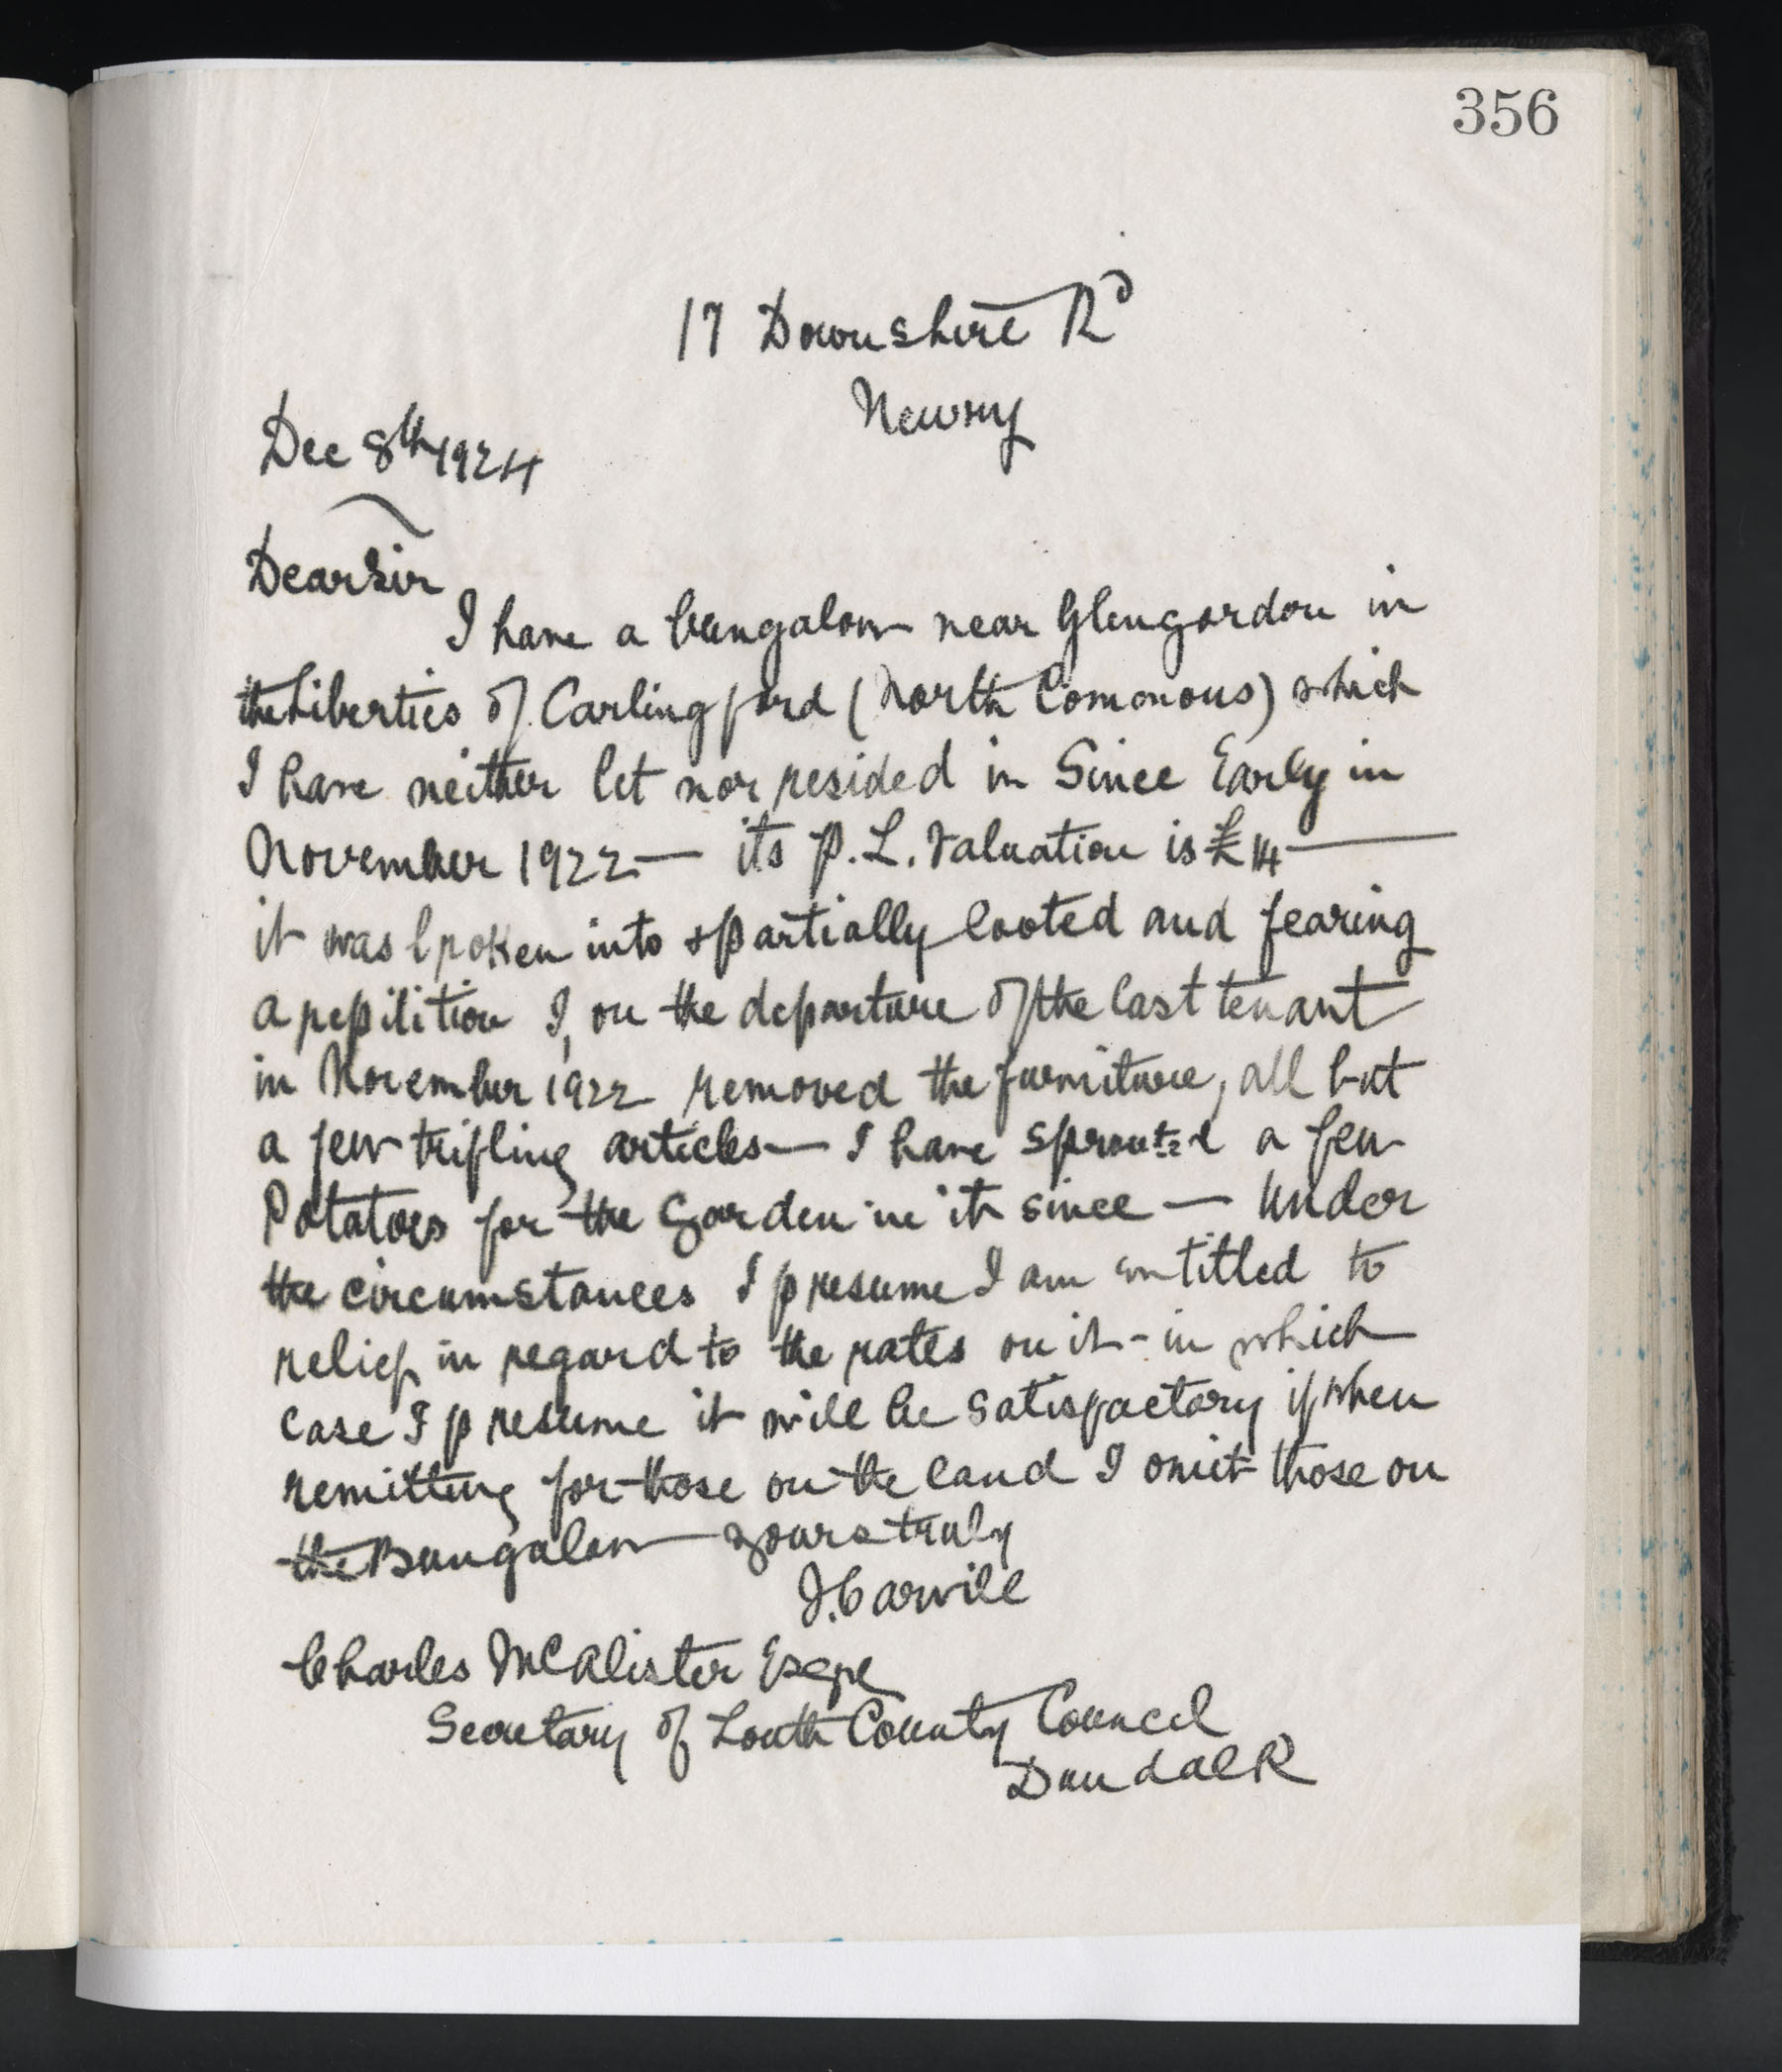 356
17 Downshire Rd
Newry
Dec 8th 1924
Dear Sir
I have a bungalow near Glengordon in
the Liberties of Carlingford (North Commons) which
I have neither let nor resided in Since Early in
November 1922 — its P. L. Valuation is £14 —
it was broken into & partially looted and fearing
a repitition I, on the departure of the last tenant
in November 1922 removed the furniture, all but
a few trifling articles — I have sprouted a few
Potatoes for the Garden in it since — Under
the circumstances I presume I am entitled to
relief in regard to the rates on it - in which
case I presume it will be satisfactory if when
remitting for those on the land I omit those on
the Bungalow yours truly
J. Carvill
Charles McAlister Esqre
Secretary of Louth County Council
Dundalk